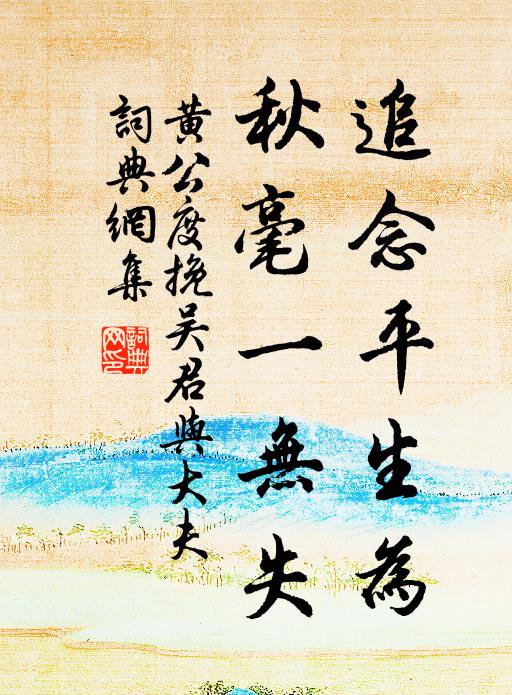 追念平生為
秋毫一無失
黃公度挽吴君與大夫
詞典網集
詞典
网印